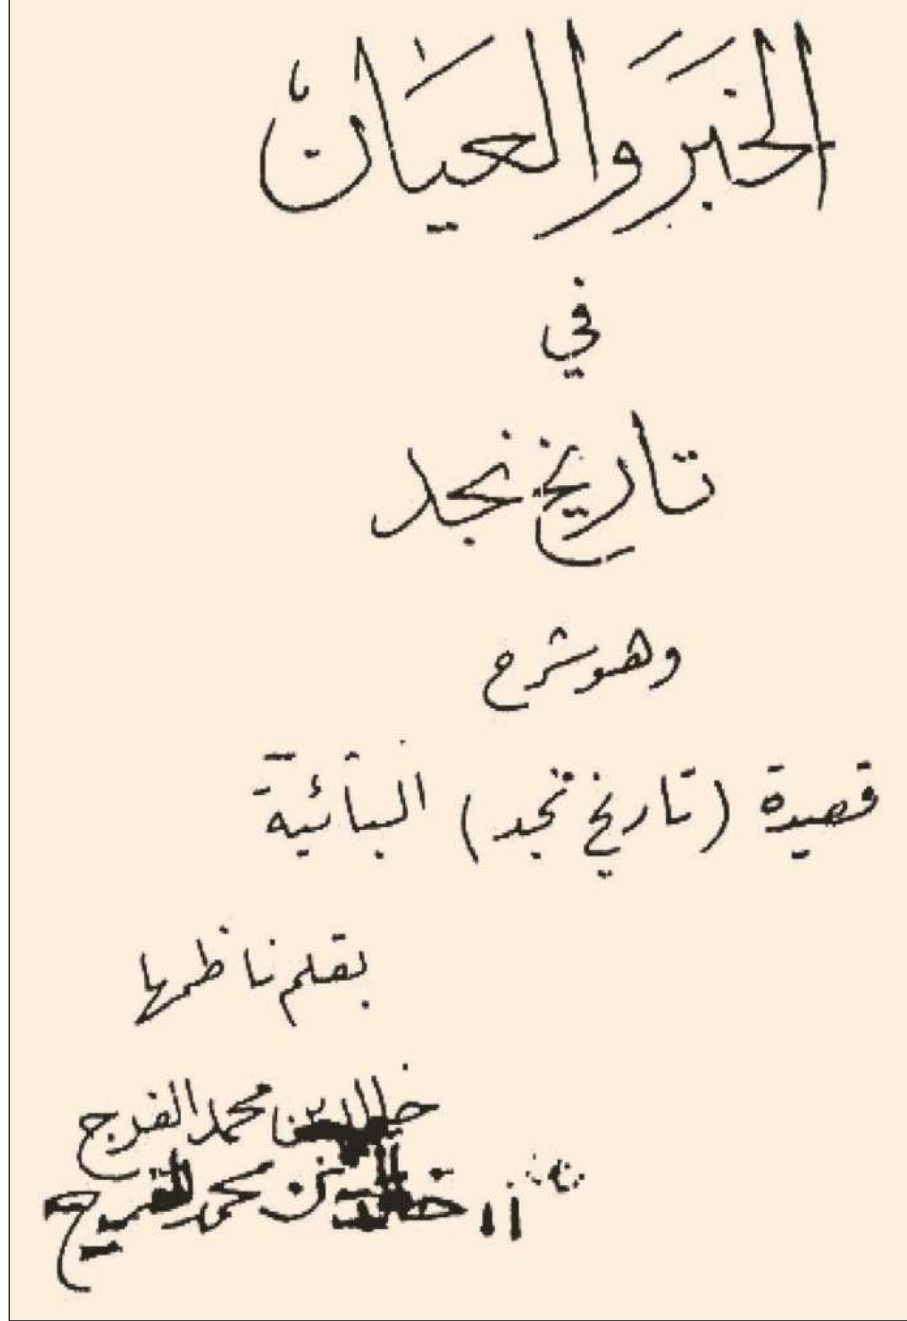 الخَبَرَ وَالعيَان
في
تاريخ نجد
وهو شرح
قصيدة (تاريخ نجد) البائيّة
بقلم ناظمها
خالد بن محمد الفرج
خالد بن محمد الفرج